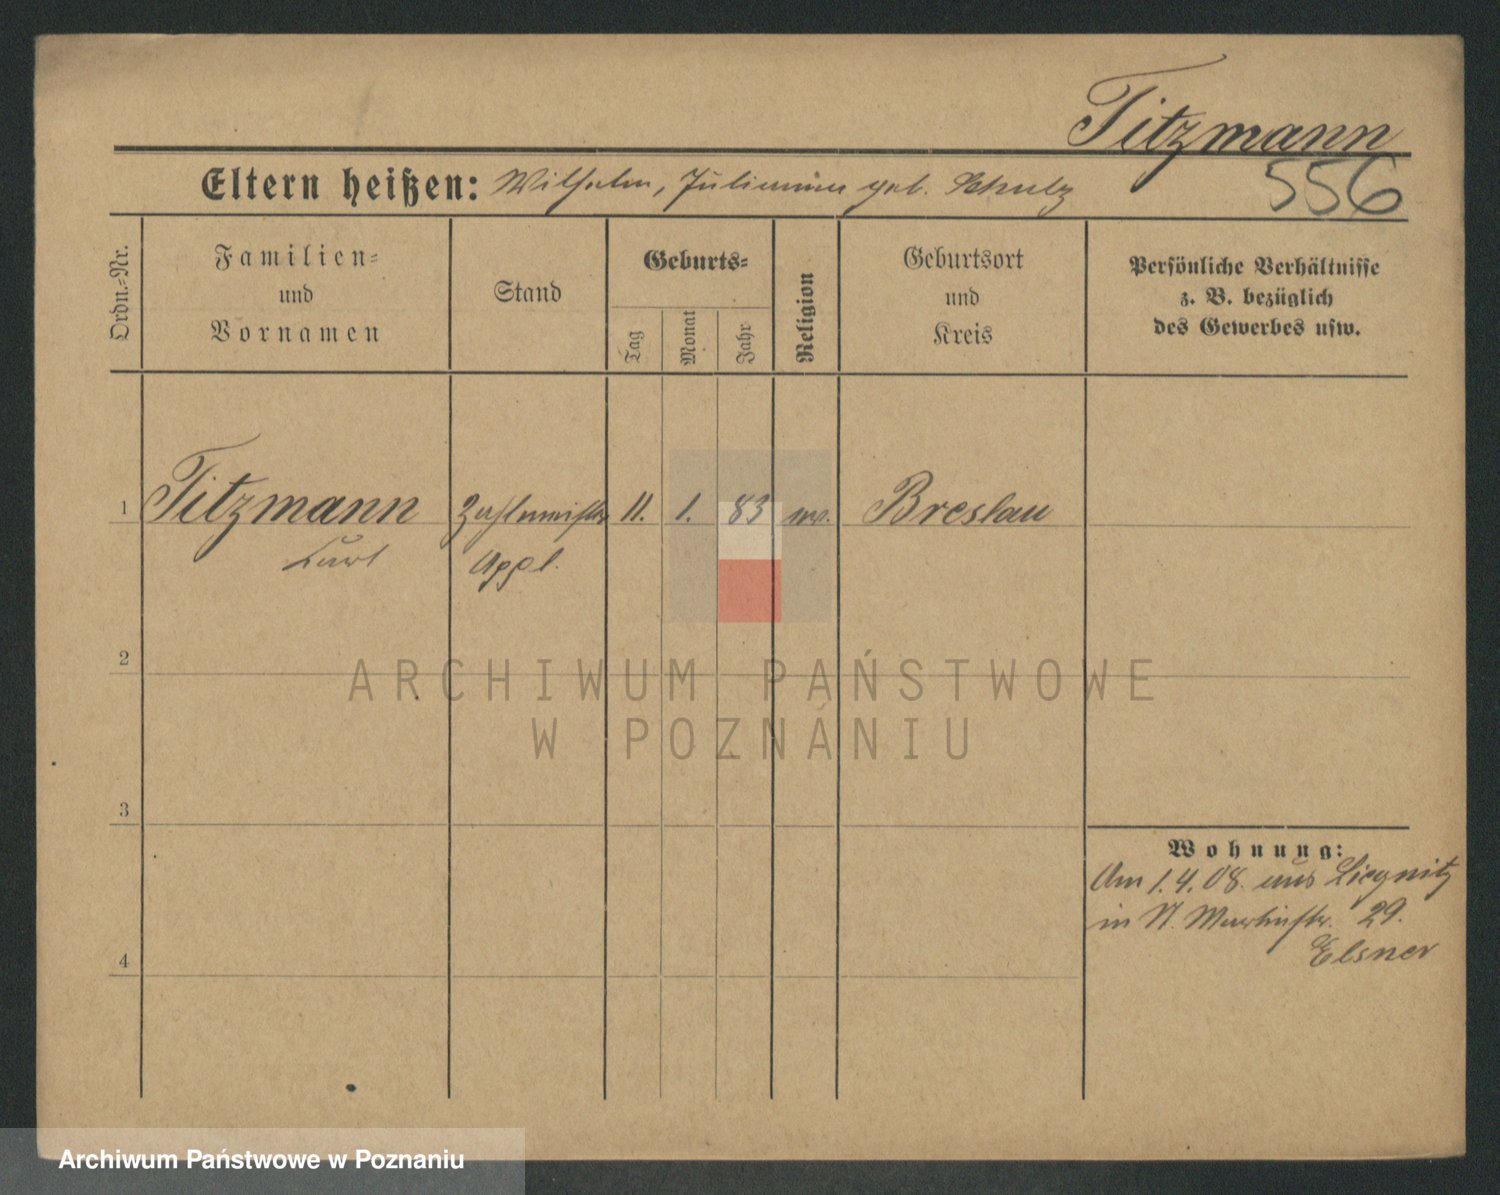 Titzmann
556
Eltern heißen: Wilhelm, Julianna geb. Schulz
Ordn.-Nr.
Familien-
und
Vornamen
Stand
Geburts-
Tag
Monat
Jahr
Religion
Geburtsort
und
Kreis
Persönliche Verhältnisse
z. B. bezüglich
des Gewerbes usw.
1 Titzmann Zahlmeister 11. 1. 83 ev. Breslau
Curt Appl.
2
ARCHIWUM PAŃSTWOWE
W POZNANIU
3
Wohnung:
Am 1.4.08. aus Liegnitz
in St. Martinstr. 29.
Elsner
4
Archiwum Państwowe w Poznaniu